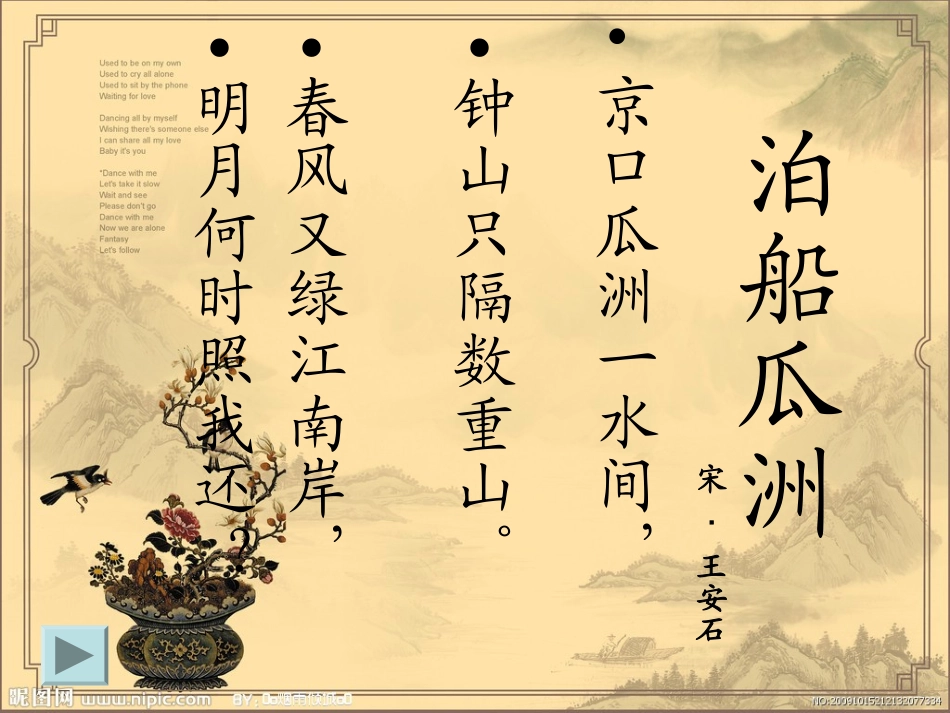 泊船瓜洲
宋·王安石
京口瓜洲一水间，
钟山只隔数重山。
春风又绿江南岸，
明月何时照我还？
Used to be on my own
Used to cry all alone
Used to sit by the phone
Waiting for love
Dancing all by myself
Wishing there's someone else
I can share all my love
Baby it's you
"Dance with me
Let's take it slow
Wait and see
Please don't go
Dance with me
Now we are alone
Fantasy
Let's follow
昵图网 www.nipic.com
BY:
NO:20091015212132077334